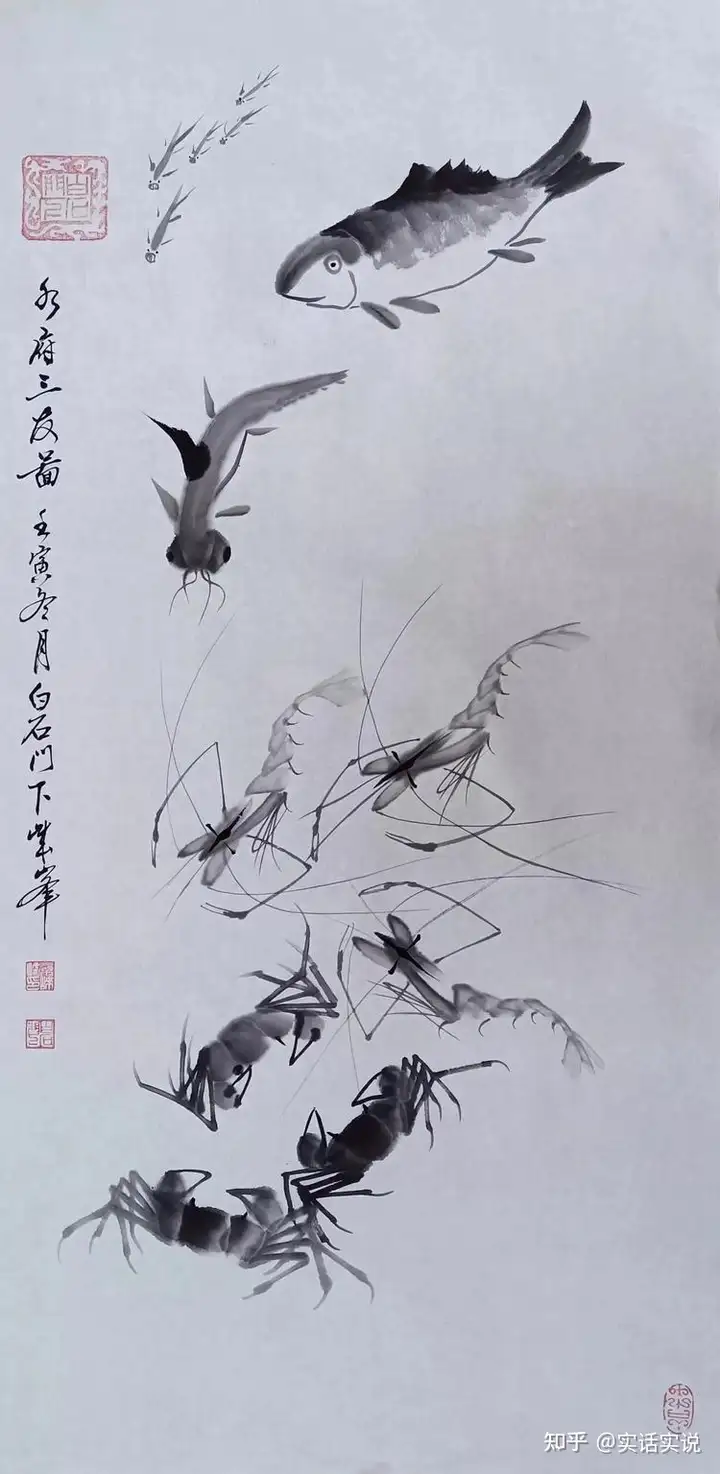 水府三友圖 壬寅冬月白石门下紫峯
知乎 @实话实说